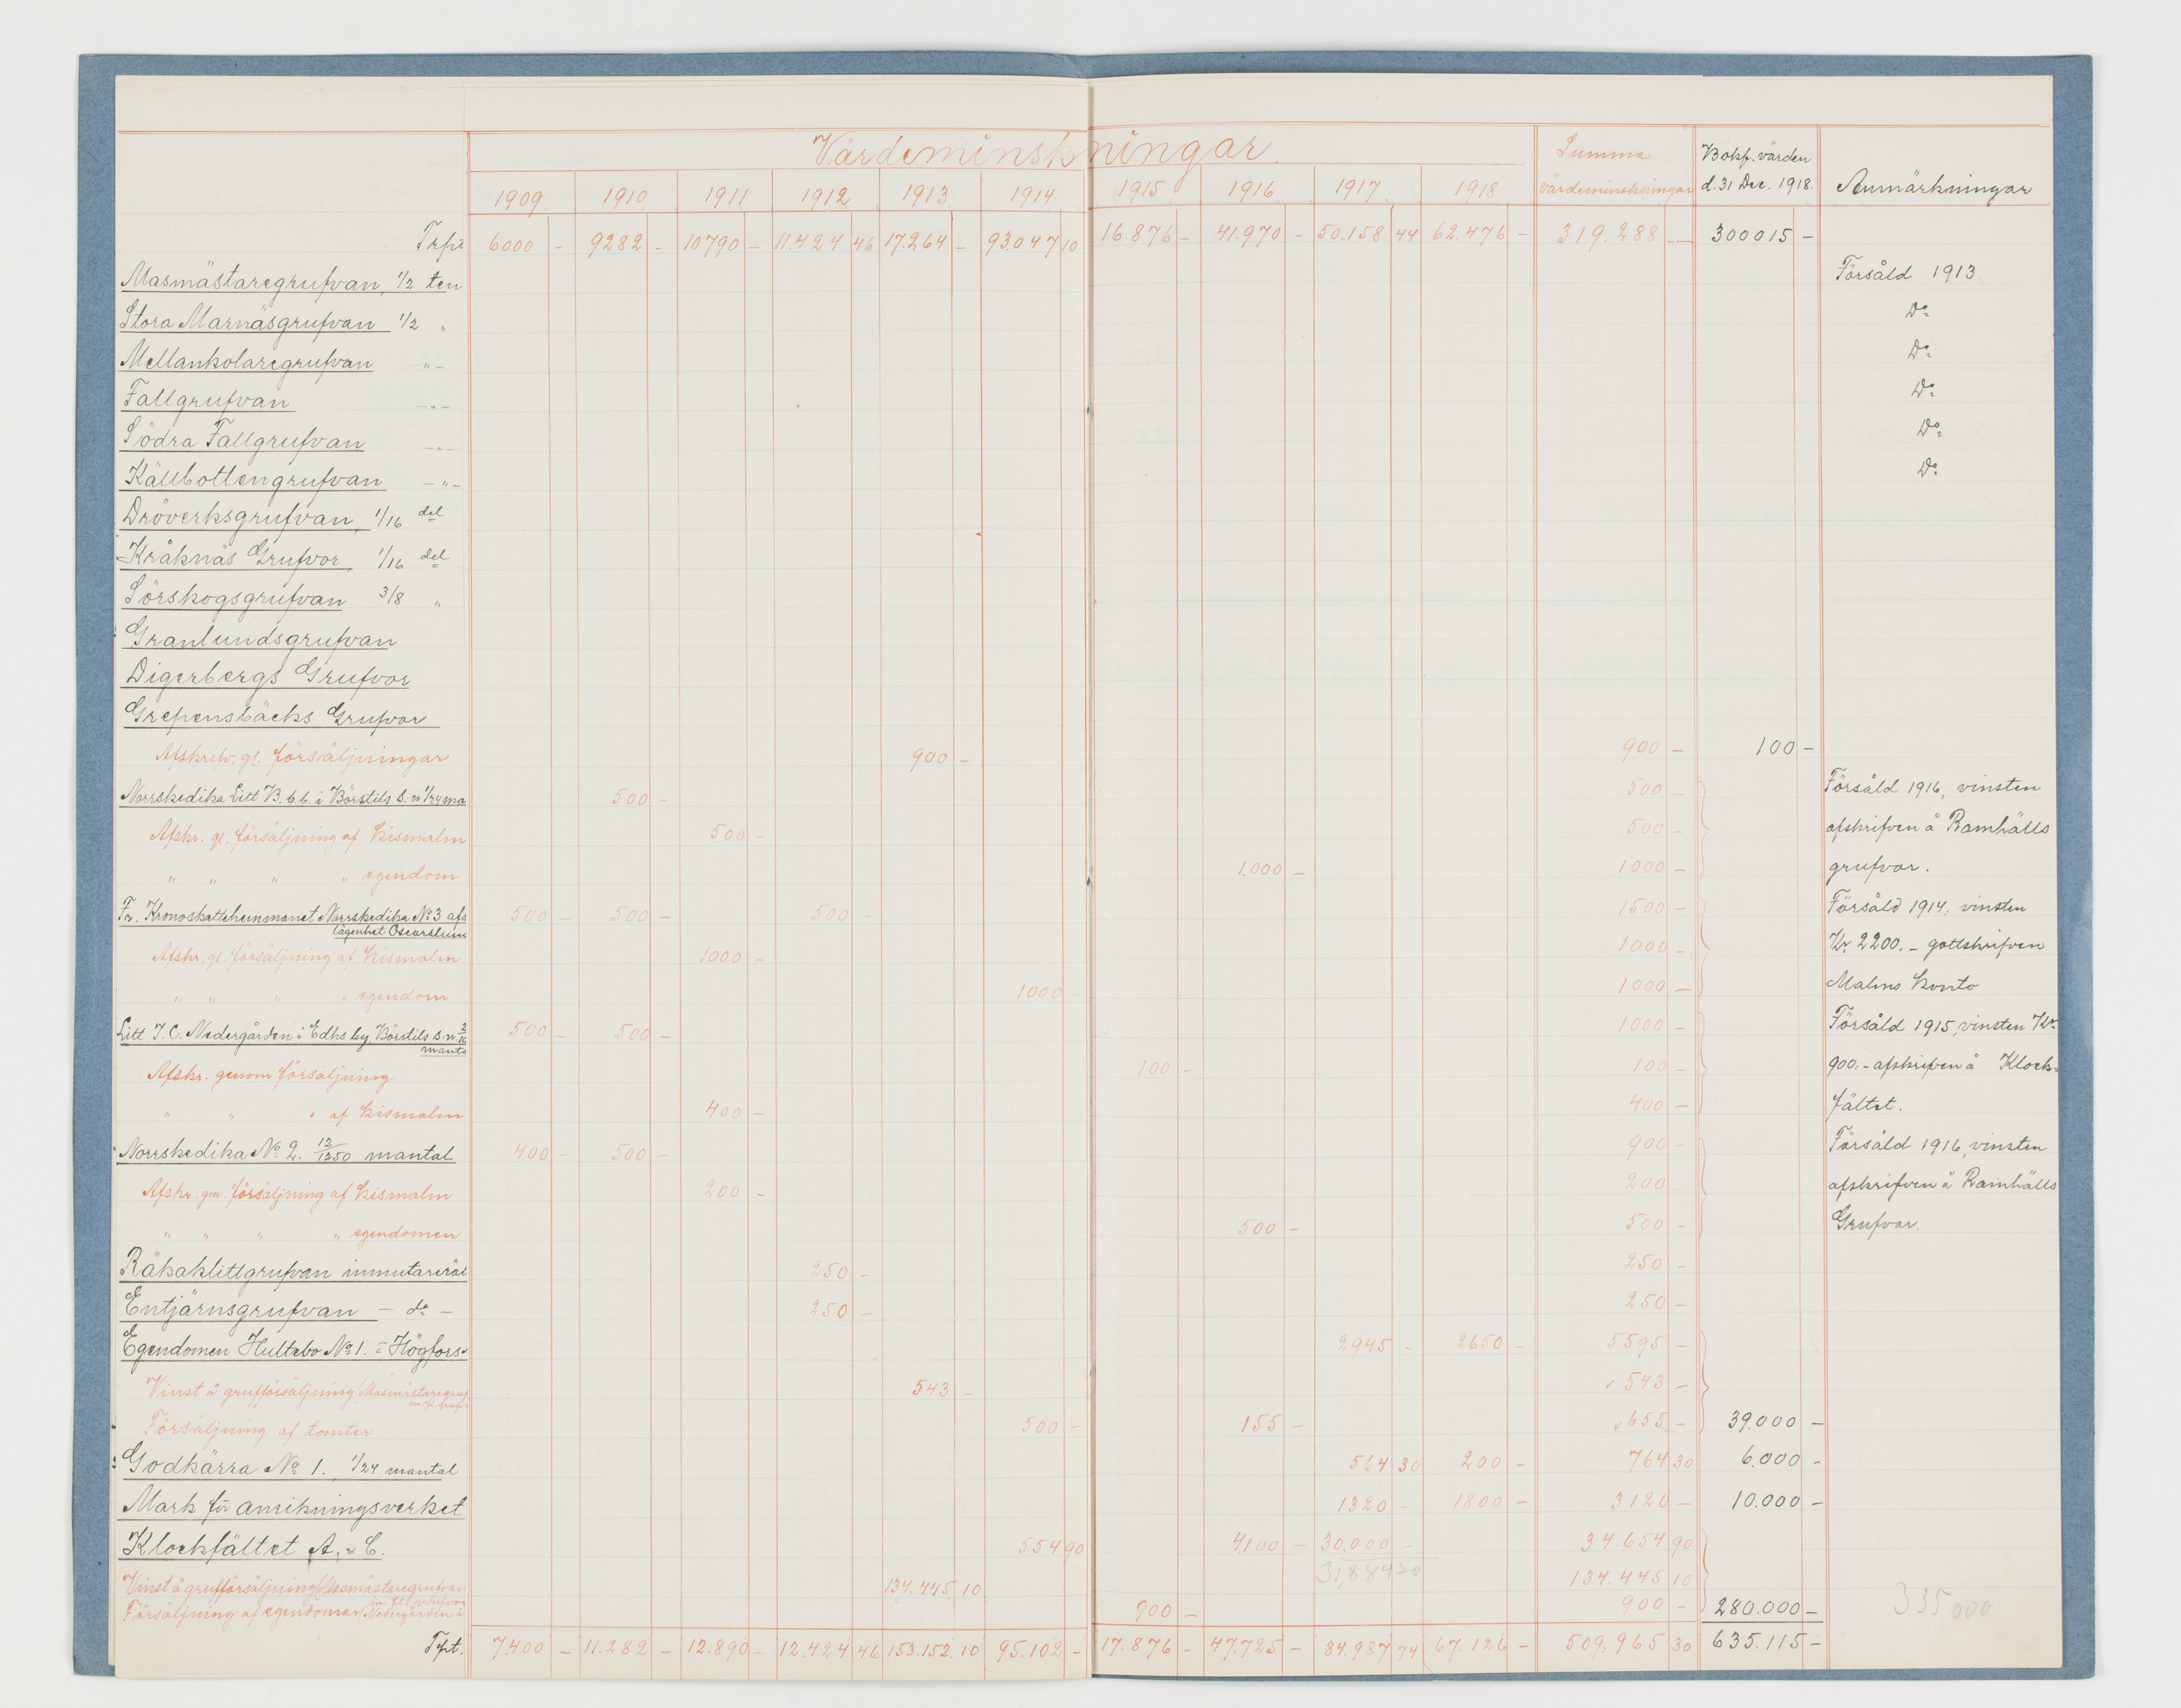 Värdeminskningar. Summa Bokf. värden
1909 1910 1911 1912 1913 1914 1915 1916 1917 1918 värdeminskningar d. 31 Dec. 1918. Anmärkningar
Trpt 6000 - 9282 - 10790 - 11.424 46 17.264 - 93.047 10 16.876 - 41.970 - 50.158 44 62.476 - 319.288 - 300015 -
Masmästaregrufvan, 1/2 ten Försåld 1913
Stora Marnäsgrufvan 1/2 " Do
Mellankolaregrufvan -"- Do
Fallgrufvan -"- Do
Södra Fallgrufvan -"- Do
Källbottengrufvan -"- Do
Dröverksgrufvan, 1/16 del
Kråknäs Grufvor, 1/16 del
Sörskogsgrufvan 3/8 "
Granlundsgrufvan
Digerbergs Grufvor
Grepensbäcks Grufvor
Afskrifv. gl. försäljningar 900 - 900 - 100 -
Norrskedika Litt B. b. b. i Börstils s:n 1/24 ma 500 - 500 - Försåld 1916, vinsten
Afskr. gl. försäljning af kismalm 500 - 500 - afskrifven å Ramhälls
" " " " egendom 1.000 - 1000 - grufvor.
Fr. Kronoskattehemmanet Norrskedika No 3 afs 500 - 500 - 500 - 1500 - Försåld 1914, vinsten
lägenhet Oscarslun
Afskr. gl. försäljning af kismalm 1000 - 1000 - Kr 2200.- gottskrifven
" " " " egendom 1000 - 1000 - Malms konto
Litt J. C. Nedergården i Edhs by, Börstils s:n 500 - 500 - 1000 - Försåld 1915, vinsten Kr.
mants
Afskr. genom försäljning 100 - 100 - 900.- afskrifven å Klock-
" " " af kismalm 400 - 400 - fältet.
Norrskedika No 2. 12/1250 mantal 400 - 500 - 900 - Försåld 1916, vinsten
Afskr. gm. försäljning af kismalm 200 - 200 - afskrifven å Ramhälls
" " " " egendomen 500 - 500 - Grufvor.
Räkaklittgrufvan inmutareräl 250 - 250 -
Entjärnsgrufvan - do - 250 - 250 -
Egendomen Hultebo No 1. = Högfors. 2945 - 2650 - 5595 -
Vinst å grufförsäljning (Masmästaregruf 543 - 543 -
m. fl. grufv
Försäljning af tomter 500 - 155 - 655 - 39.000 -
Godkärra No 1., 1/24 mantal 564 30 200 - 764 30 6.000 -
Mark för anrikningsverket 1320 - 1800 - 3120 - 10.000 -
Klockfältet A. & C. 554 90 4.100 - 30.000 - 34.654 90
31,884 30
Vinst å grufförsäljning (Masmästaregrufvan 134.445 10 134.445 10
m. fl. grufvor
Försäljning af egendomar (Nedergården i 900 - 900 - 280.000 - 335 000
Trpt. 7.400 - 11.282 - 12.890 - 12.424 46 153.152. 10 95.102 - 17.876 - 47.725 - 84.987 74 67.126 - 509.965 30 635.115 -